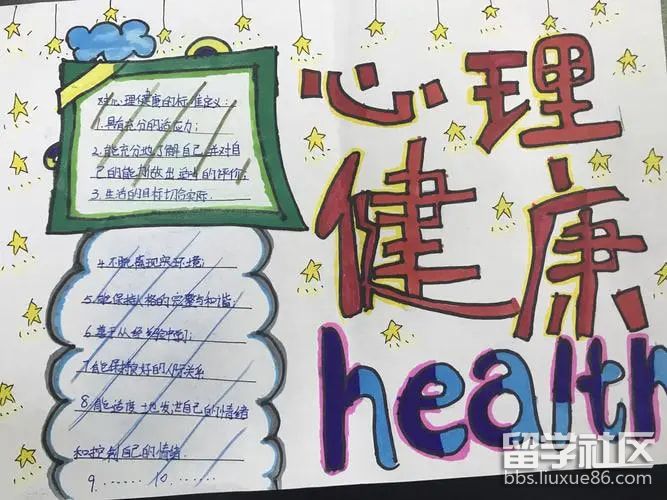 对心理健康的标准定义：
1.具有充分的适应力；
2.能充分地了解自己,并对自
己的能力做出适当的评价；
3.生活的目标切合实际；
4.不脱离现实环境；
5.能保持人格的完整与和谐；
6.善于从经验中学习；
7.能保持良好的人际关系
8.能适度地发泄自己的情绪
和控制自己的情绪
9.…… 10.……
心理
健康
health
留学社区
bbs.liuxue86.com